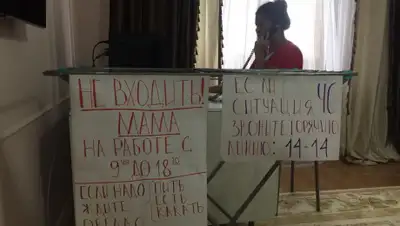 НЕ ВХОДИТЬ!
МАМА
НА РАБОТЕ С
9⁰⁰ ДО 18⁰⁰
ЕСЛИ НАДО
ЖДИТЕ
ПИТЬ
ЕСТЬ
КАКАТЬ
ЕСЛИ
СИТУАЦИЯ ЧС
ЗВОНИТЕ ГОРЯЧУЮ
ЛИНИЮ: 14-14